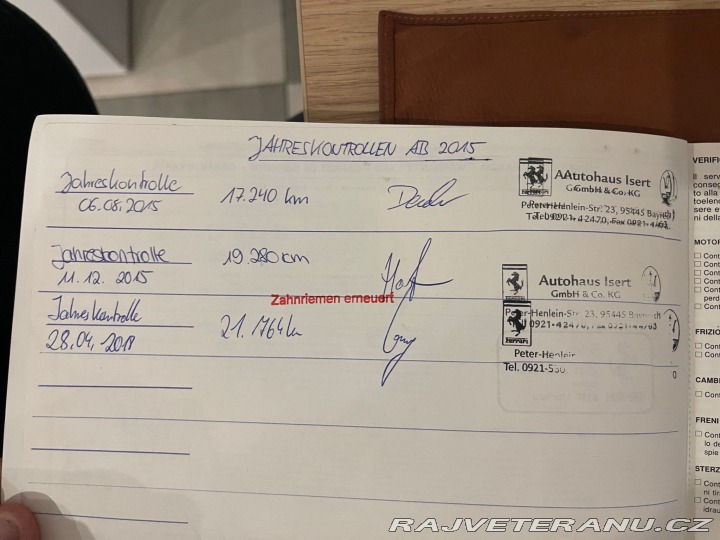 JAHRESKONTROLLEN AB 2015
Jahreskontrolle 17.240 km
06.08.2015
Autohaus Isert
GmbH & Co. KG
Peter-Henlein-Str. 23, 95445 Bayreuth
Tel. 0921-42470, Fax 0921-
Jahreskontrolle 19.280 km
11.12.2015
Zahnriemen erneuert
Autohaus Isert
GmbH & Co. KG
Peter-Henlein-Str. 23, 95445 Bayreuth
0921-42470, Fax 0921-44763
Jahreskontrolle 21.1764 km
28.04.2018
Ferrari
Peter-Henlein
Tel. 0921-530
0
VERIFI
Il serv
conseg
to alla
toelen
sere e
ni della
MOTOR
Cont
Cont
Cont
Cont
Cont
perd
Cont
FRIZIO
Cont
CAMBI
Cont
FRENI
Cont
lo de
spie
STERZ
Cont
ni tir
Cont
idrau
RAJVETERANU.CZ